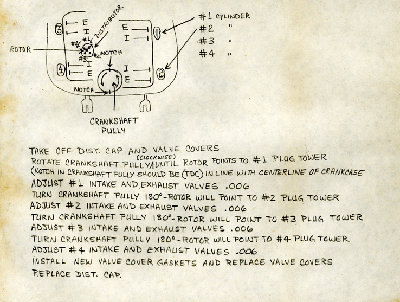 #1 CYLINDER
#2 "
#3 "
#4 "
DISTRIBUTOR
E
E
I
I
ROTOR
NOTCH
I
I
E
E
NOTCH
CRANKSHAFT
PULLY
TAKE OFF DIST. CAP AND VALVE COVERS
(CLOCKWISE)
ROTATE CRANKSHAFT PULLY UNTIL ROTOR POINTS TO #1 PLUG TOWER
(NOTCH IN CRANKSHAFT PULLY SHOULD BE (TDC) IN LINE WITH CENTERLINE OF CRANKCASE
ADJUST #1 INTAKE AND EXHAUST VALVES .006
TURN CRANKSHAFT PULLY 180°-ROTOR WILL POINT TO #2 PLUG TOWER
ADJUST #2 INTAKE AND EXHAUST VALVES .006
TURN CRANKSHAFT PULLY 180°-ROTOR WILL POINT TO #3 PLUG TOWER
ADJUST #3 INTAKE AND EXHAUST VALVES .006
TURN CRANKSHAFT PULLY 180°-ROTOR WILL POINT TO #4 PLUG TOWER
ADJUST #4 INTAKE AND EXHAUST VALVES .006
INSTALL NEW VALVE COVER GASKETS AND REPLACE VALVE COVERS
REPLACE DIST. CAP